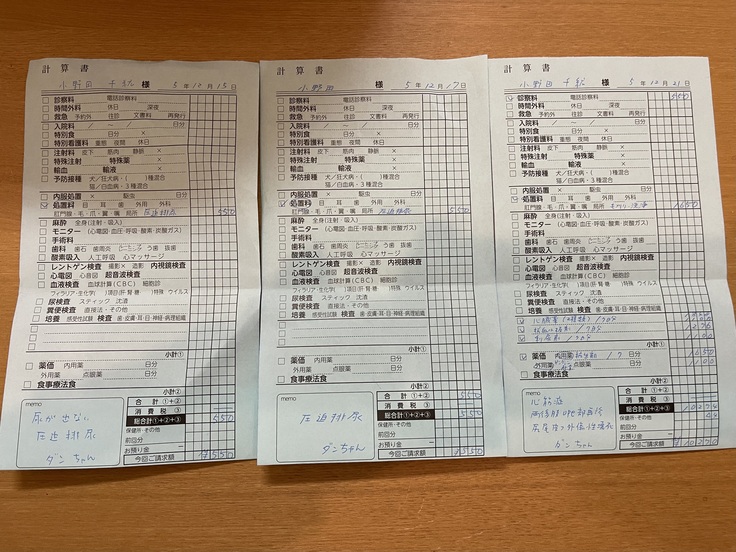 計算書
小野田 千紘 様 5年12月15日
診察料 電話診察料
時間外料 休日 深夜
救急 予約外 往診 文書料 再発行
入院料 / ~ / 日分
特別食 日分 ×
特別看護料 重態 夜間 休日
注射料 皮下 筋肉 静脈 ×
特殊注射 特殊薬 ×
輸血 輸液 ×
予防接種 犬/狂犬病・( )種混合
猫/白血病・3種混合
内服処置 × 駆虫
処置料 目 耳 歯 外用 外科
肛門腺・毛・爪・翼・嘴 局所 圧迫排尿 550
麻酔 全身(注射・吸入)
モニター (心電図・血圧・呼吸・酸素・炭酸ガス)
手術料
歯科 歯石 歯周炎 う歯 抜歯
酸素吸入 人工呼吸 心マッサージ
レントゲン検査 撮影× 造影 内視鏡検査
心電図 心音図 超音波検査
血液検査 血球計算(CBC) 細胞診
フィラリア・生化学( )項目(肝・腎・巻 )特殊 ウイルス
尿検査 スティック 沈渣
糞便検査 直接法・その他
培養 感受性試験 検査 歯・皮膚・耳・目・神経・病理組織
小計①
薬価 内用薬 日分
外用薬 点眼薬 日分
食事療法食
小計②
memo
尿が出ない
圧迫排尿
ダンちゃん
合計 ①+②
消費税 ③
総合計①+②+③ 550
保健所・その他
前回分
お預り金 −
今回ご請求額 ¥550
計算書
小野田 様 5年12月17日
診察料 電話診察料
時間外料 休日 深夜
救急 予約外 往診 文書料 再発行
入院料 / ~ / 日分
特別食 日分 ×
特別看護料 重態 夜間 休日
注射料 皮下 筋肉 静脈 ×
特殊注射 特殊薬 ×
輸血 輸液 ×
予防接種 犬/狂犬病・( )種混合
猫/白血病・3種混合
内服処置 × 駆虫
処置料 目 耳 歯 外用 外科
肛門腺・毛・爪・翼・嘴 局所 圧迫排尿 550
麻酔 全身(注射・吸入)
モニター (心電図・血圧・呼吸・酸素・炭酸ガス)
手術料
歯科 歯石 歯周炎 う歯 抜歯
酸素吸入 人工呼吸 心マッサージ
レントゲン検査 撮影× 造影 内視鏡検査
心電図 心音図 超音波検査
血液検査 血球計算(CBC) 細胞診
フィラリア・生化学( )項目(肝・腎・巻 )特殊 ウイルス
尿検査 スティック 沈渣
糞便検査 直接法・その他
培養 感受性試験 検査 歯・皮膚・耳・目・神経・病理組織
小計①
薬価 内用薬 日分
外用薬 点眼薬 日分
食事療法食
小計②
memo
圧迫排尿
ダンちゃん
合計 ①+② 550
消費税 ③
総合計①+②+③ 550
保健所・その他
前回分
お預り金 −
今回ご請求額 ¥550
計算書
小野田 千紘 様 5年12月21日
診察料 電話診察料 550
時間外料 休日 深夜
救急 予約外 往診 文書料 再発行
入院料 / ~ / 日分
特別食 日分 ×
特別看護料 重態 夜間 休日
注射料 皮下 筋肉 静脈 ×
特殊注射 特殊薬 ×
輸血 輸液 ×
予防接種 犬/狂犬病・( )種混合
猫/白血病・3種混合
内服処置 × 駆虫
処置料 目 耳 歯 外用 外科
肛門腺・毛・爪・翼・嘴 局所 洗浄 1650
麻酔 全身(注射・吸入)
モニター (心電図・血圧・呼吸・酸素・炭酸ガス)
手術料
歯科 歯石 歯周炎 う歯 抜歯
酸素吸入 人工呼吸 心マッサージ
レントゲン検査 撮影× 造影 内視鏡検査
心電図 心音図 超音波検査
血液検査 血球計算(CBC) 細胞診
フィラリア・生化学( )項目(肝・腎・巻 )特殊 ウイルス
尿検査 スティック 沈渣
糞便検査 直接法・その他
培養 感受性試験 検査 歯・皮膚・耳・目・神経・病理組織
小計①
薬価 内用薬 抗生剤 7 日分 1650
外用薬 点眼薬 日分 1100
食事療法食
小計②
memo
ダンちゃん
合計 ①+②
消費税 ③
総合計①+②+③
保健所・その他
前回分
お預り金 −
今回ご請求額 ¥10270